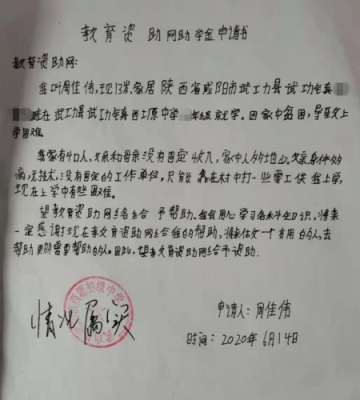 教育资助网助学金申请书
教育资助网:
我叫周佳伟,现13岁,家居陕西省咸阳市武功县武功镇
现在武功县武功镇 中学 年级就学。因家中贫困,导致上
学困难。
我家有4口人,父亲和母亲没有固定收入,家中人多地少,父亲身体
病,无技术,没有固定的工作单位。只能靠在村中打一些零工供我上学,
现在上学中有些困难。
望教育资助网络给予帮助,我会用心学习各种知识,将来
一定感谢现在教育资助网给我的帮助,将来做一个有用的人,去
帮助更多需要帮助的人。因此,望教育资助网给予资助。
情况属实
初级中学
申请人:周佳伟
时间:2020年6月14日